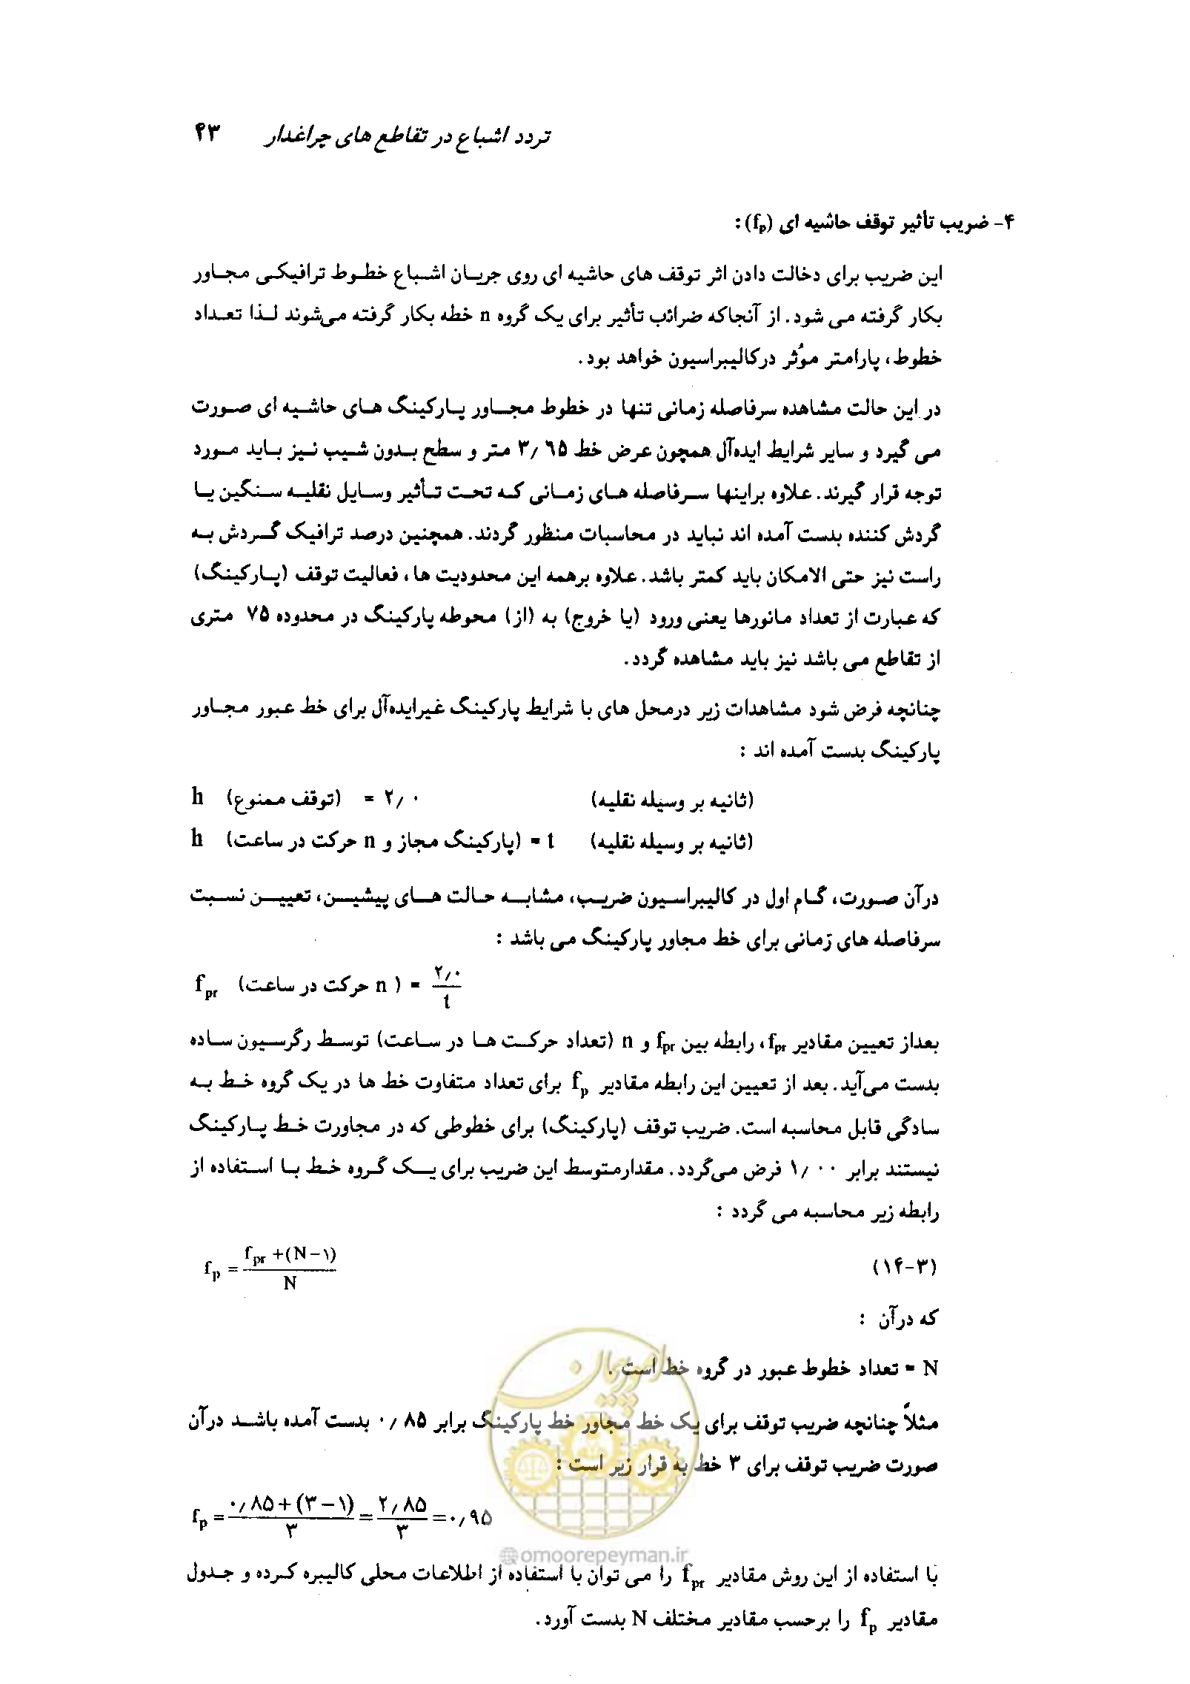 تردد اشباع در تقاطع های چراغدار ۴۳
۴- ضریب تأثیر توقف حاشیه ای (fp):
این ضریب برای دخالت دادن اثر توقف های حاشیه ای روی جریان اشباع خطوط ترافیکی مجاور
بکار گرفته می شود. از آنجاکه ضرائب تأثیر برای یک گروه n خطه بکار گرفته می‌شوند لذا تعداد
خطوط، پارامتر مؤثر درکالیبراسیون خواهد بود.
در این حالت مشاهده سرفاصله زمانی تنها در خطوط مجاور پارکینگ های حاشیه ای صورت
می گیرد و سایر شرایط ایده‌آل همچون عرض خط ۳/۶۵ متر و سطح بدون شیب نیز باید مورد
توجه قرار گیرند. علاوه براینها سرفاصله های زمانی که تحت تأثیر وسایل نقلیه سنگین یا
گردش کننده بدست آمده اند نباید در محاسبات منظور گردند. همچنین درصد ترافیک گردش به
راست نیز حتی الامکان باید کمتر باشد. علاوه برهمه این محدودیت ها، فعالیت توقف (پارکینگ)
که عبارت از تعداد مانورها یعنی ورود (یا خروج) به (از) محوطه پارکینگ در محدوده ۷۵ متری
از تقاطع می باشد نیز باید مشاهده گردد.
چنانچه فرض شود مشاهدات زیر درمحل های با شرایط پارکینگ غیرایده‌آل برای خط عبور مجاور
پارکینگ بدست آمده اند :
h (توقف ممنوع) = ۲/۰ (ثانیه بر وسیله نقلیه)
h (پارکینگ مجاز و n حرکت در ساعت) = t (ثانیه بر وسیله نقلیه)
درآن صورت، گام اول در کالیبراسیون ضریب، مشابه حالت های پیشین، تعیین نسبت
سرفاصله های زمانی برای خط مجاور پارکینگ می باشد :
fpr (n حرکت در ساعت) = ۲/۰ / t
بعداز تعیین مقادیر fpr، رابطه بین fpr و n (تعداد حرکت ها در ساعت) توسط رگرسیون ساده
بدست می‌آید. بعد از تعیین این رابطه مقادیر fp برای تعداد متفاوت خط ها در یک گروه خط به
سادگی قابل محاسبه است. ضریب توقف (پارکینگ) برای خطوطی که در مجاورت خط پارکینگ
نیستند برابر ۱/۰۰ فرض می‌گردد. مقدارمتوسط این ضریب برای یک گروه خط با استفاده از
رابطه زیر محاسبه می گردد :
fp = fpr +(N-۱) / N (۱۴-۳)
که درآن :
N = تعداد خطوط عبور در گروه خط است .
مثلاً چنانچه ضریب توقف برای یک خط مجاور خط پارکینگ برابر ۰/۸۵ بدست آمده باشد درآن
صورت ضریب توقف برای ۳ خط به قرار زیر است :
fp = ۰/۸۵+(۳-۱) / ۳ = ۲/۸۵ / ۳ = ۰/۹۵
@omoorepeyman.ir
با استفاده از این روش مقادیر fpr را می توان با استفاده از اطلاعات محلی کالیبره کرده و جدول
مقادیر fp را برحسب مقادیر مختلف N بدست آورد.